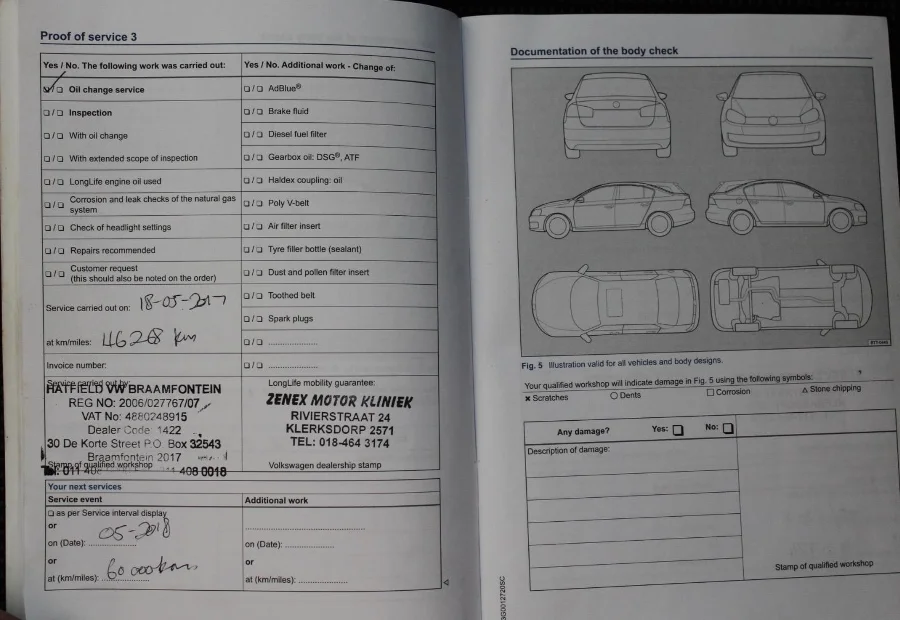 Proof of service 3
Yes / No. The following work was carried out:
☑/☐ Oil change service
☐/☐ Inspection
☐/☐ With oil change
☐/☐ With extended scope of inspection
☐/☐ LongLife engine oil used
☐/☐ Corrosion and leak checks of the natural gas
system
☐/☐ Check of headlight settings
☐/☐ Repairs recommended
☐/☐ Customer request
(this should also be noted on the order)
Service carried out on: 18-05-2017
at km/miles: 46268 km
Invoice number:
Service carried out by:
HATFIELD VW BRAAMFONTEIN
REG NO: 2006/027767/07
VAT No: 4880248915
Dealer Code: 1422
30 De Korte Street P.O. Box 32543
Braamfontein 2017
Stamp of qualified workshop
408 0018
Yes / No. Additional work - Change of:
☐/☐ AdBlue®
☐/☐ Brake fluid
☐/☐ Diesel fuel filter
☐/☐ Gearbox oil: DSG®, ATF
☐/☐ Haldex coupling: oil
☐/☐ Poly V-belt
☐/☐ Air filter insert
☐/☐ Tyre filler bottle (sealant)
☐/☐ Dust and pollen filter insert
☐/☐ Toothed belt
☐/☐ Spark plugs
☐/☐ ....................
☐/☐ ....................
LongLife mobility guarantee:
ZENEX MOTOR KLINIEK
RIVIERSTRAAT 24
KLERKSDORP 2571
TEL: 018-464 3174
Volkswagen dealership stamp
Your next services
Service event
☐ as per Service interval display
or
on (Date): 05-2018
or
at (km/miles): 60 000 km
Additional work
....................
on (Date): ....................
or
at (km/miles): ....................
Documentation of the body check
Fig. 5 Illustration valid for all vehicles and body designs.
Your qualified workshop will indicate damage in Fig. 5 using the following symbols:
✖ Scratches ○ Dents □ Corrosion △ Stone chipping
Any damage? Yes: ☐ No: ☐
Description of damage:
Stamp of qualified workshop